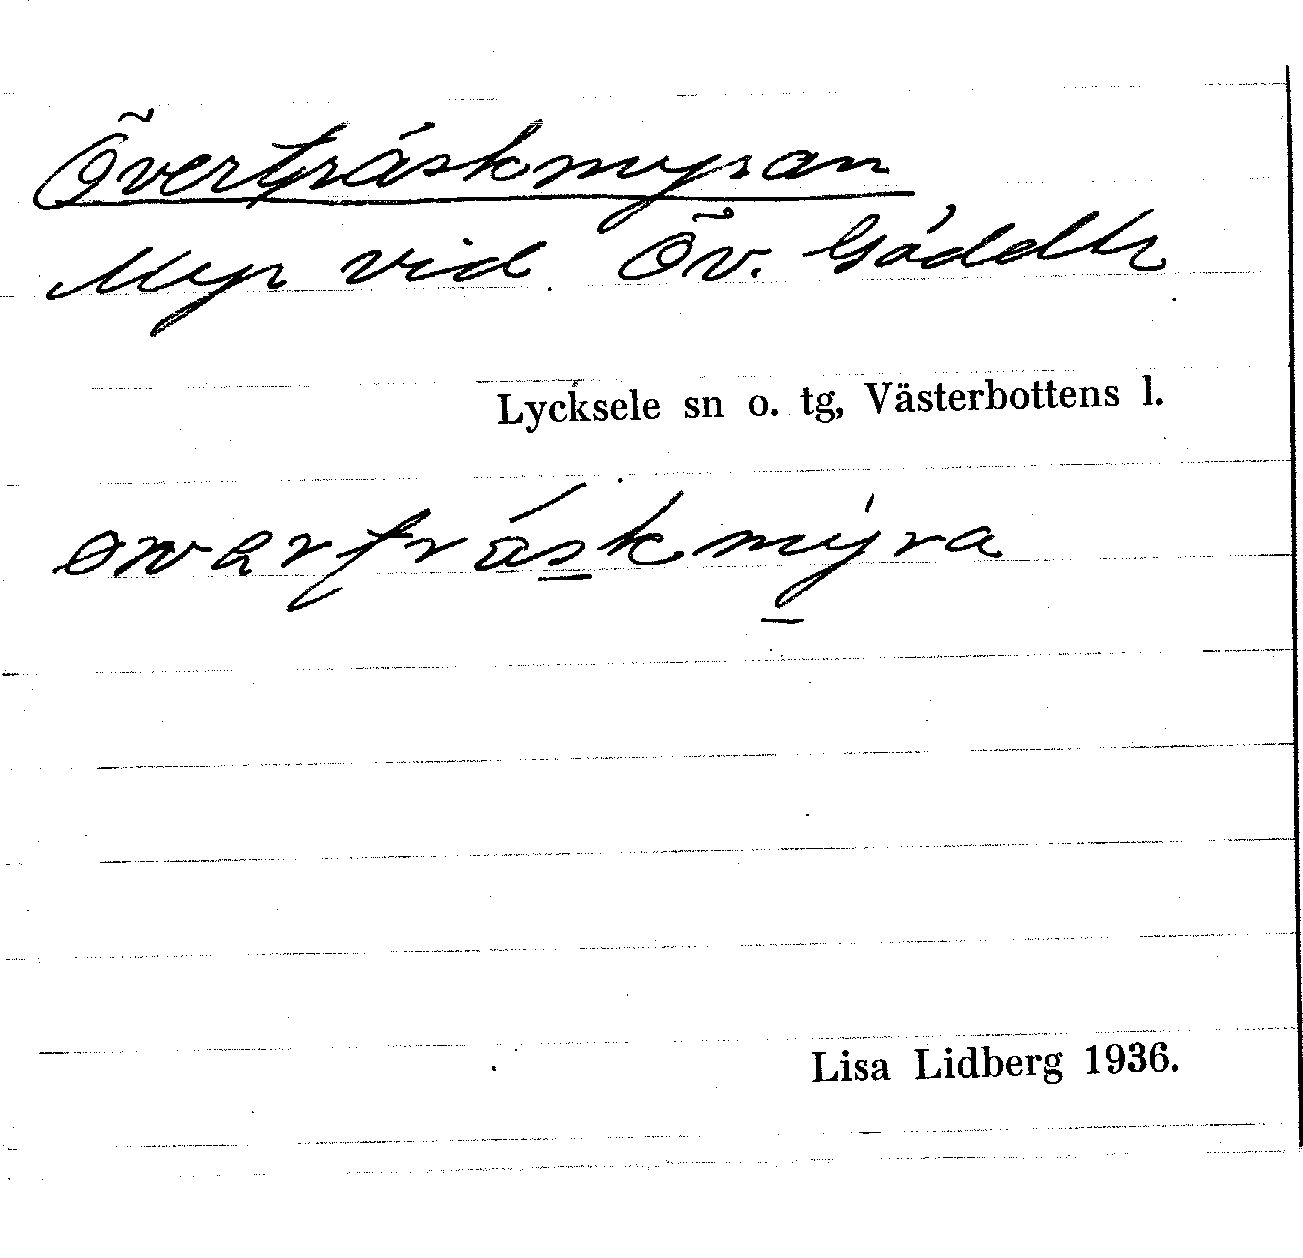 Överträskmyran
Myr vid Öv. Gäddtr
Lycksele sn o. tg, Västerbottens l.
Lisa Lidberg 1936.